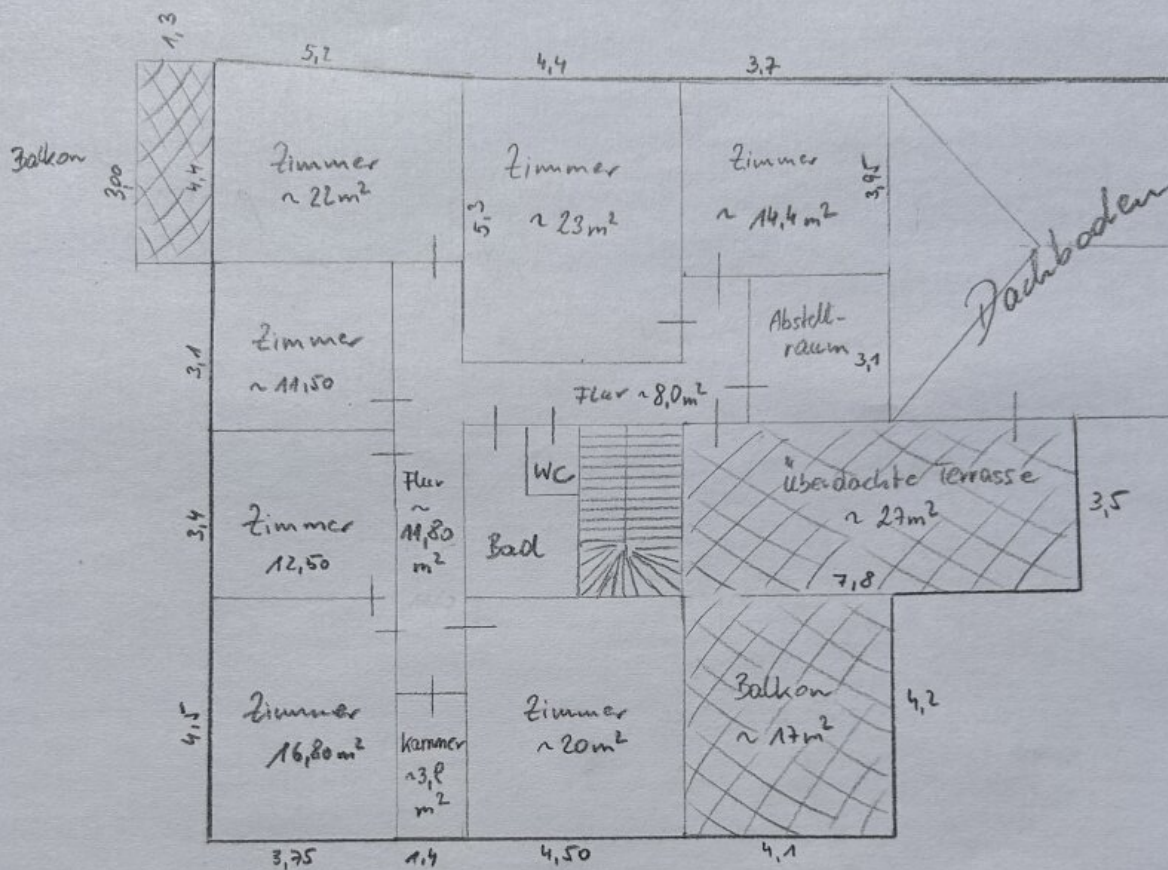 1,3
5,2
4,4
3,7
Balkon
3,00
4,4
Zimmer
~ 22m²
5,3
Zimmer
~ 23m²
Zimmer
~ 14,4m²
3,95
Dachboden
3,1
Zimmer
~ 11,50
Abstell-
raum
3,1
Flur ~8,0m²
3,4
Zimmer
12,50
Flur
~
11,80
m²
Bad
WC
überdachte Terrasse
~ 27m²
3,5
7,8
4,5
Zimmer
16,80m²
Kammer
m²
Zimmer
~20m²
Balkon
~ 17m²
4,2
3,75
1,4
4,50
4,1